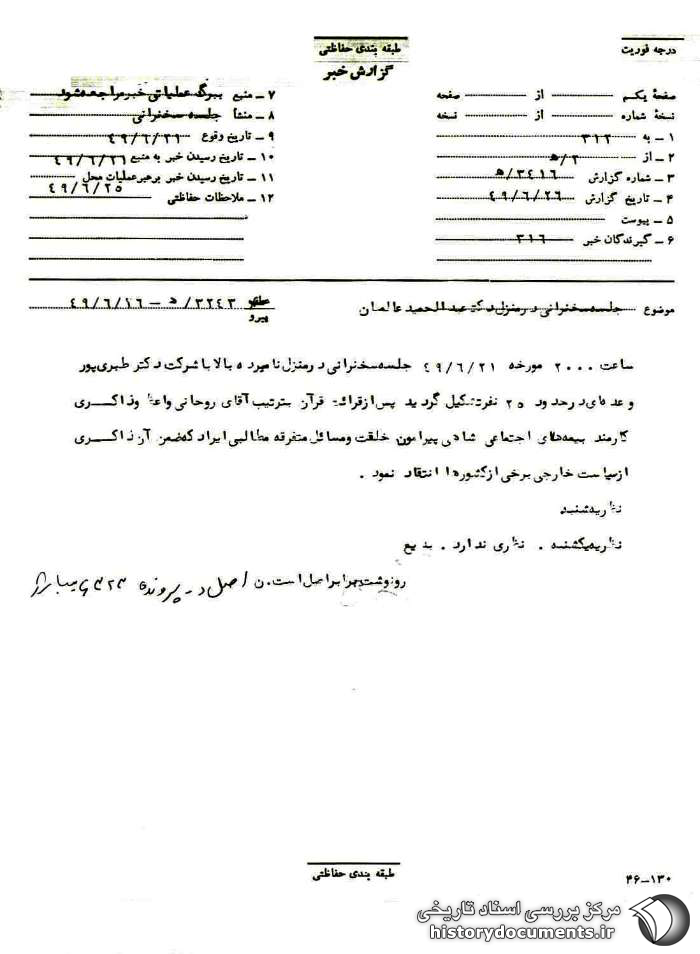 درجه فوریت
طبقه بندی حفاظتی
گزارش خبر
صفحهٔ یکم از صفحه
نسخهٔ شماره از نسخه
۱ ـ به ۳۱۲
۲ ـ از ۲/ه
۳ ـ شماره گزارش ۳۴۱۶/ه
۴ ـ تاریخ گزارش ۴۹/۶/۲۶
۵ ـ پیوست
۶ ـ گیرندگان خبر ۳۱۶
۷ ـ منبع ببرگ عملیاتی خبر مراجعه شود
۸ ـ منشأ جلسه سخنرانی
۹ ـ تاریخ وقوع ۴۹/۶/۲۱
۱۰ ـ تاریخ رسیدن خبر به منبع ۴۹/۶/۲۱
۱۱ ـ تاریخ رسیدن خبر برهبر عملیات محل ۴۹/۶/۲۵
۱۲ ـ ملاحظات حفاظتی
موضوع جلسه سخنرانی در منزل دکتر عبدالحمید عالمان
پیرو ۳۲۴۳/ه – ۴۹/۶/۱۶
ساعت ۲۰۰۰ مورخه ۴۹/۶/۲۱ جلسه سخنرانی در منزل نامبرده بالا با شرکت دکتر طبری پور
و عده ای در حدود ۲۵ نفر تشکیل گردید پس از قرائت قرآن بترتیب آقای روحانی واعظ و ذاکری
کارمند بیمه های اجتماعی پیرامون خلقت و مسائل متفرقه مطالبی ایراد که ضمن آن ذاکری
از سیاست خارجی برخی از کشورها انتقاد نمود .
نظریه شنبه
نظریه یکشنبه . نظری ندارد . بدیع
رونوشت برابر اصل است. اصل در پرونده
طبقه بندی حفاظتی
۴۶–۱۳۰
مرکز بررسی اسناد تاریخی
historydocuments.ir